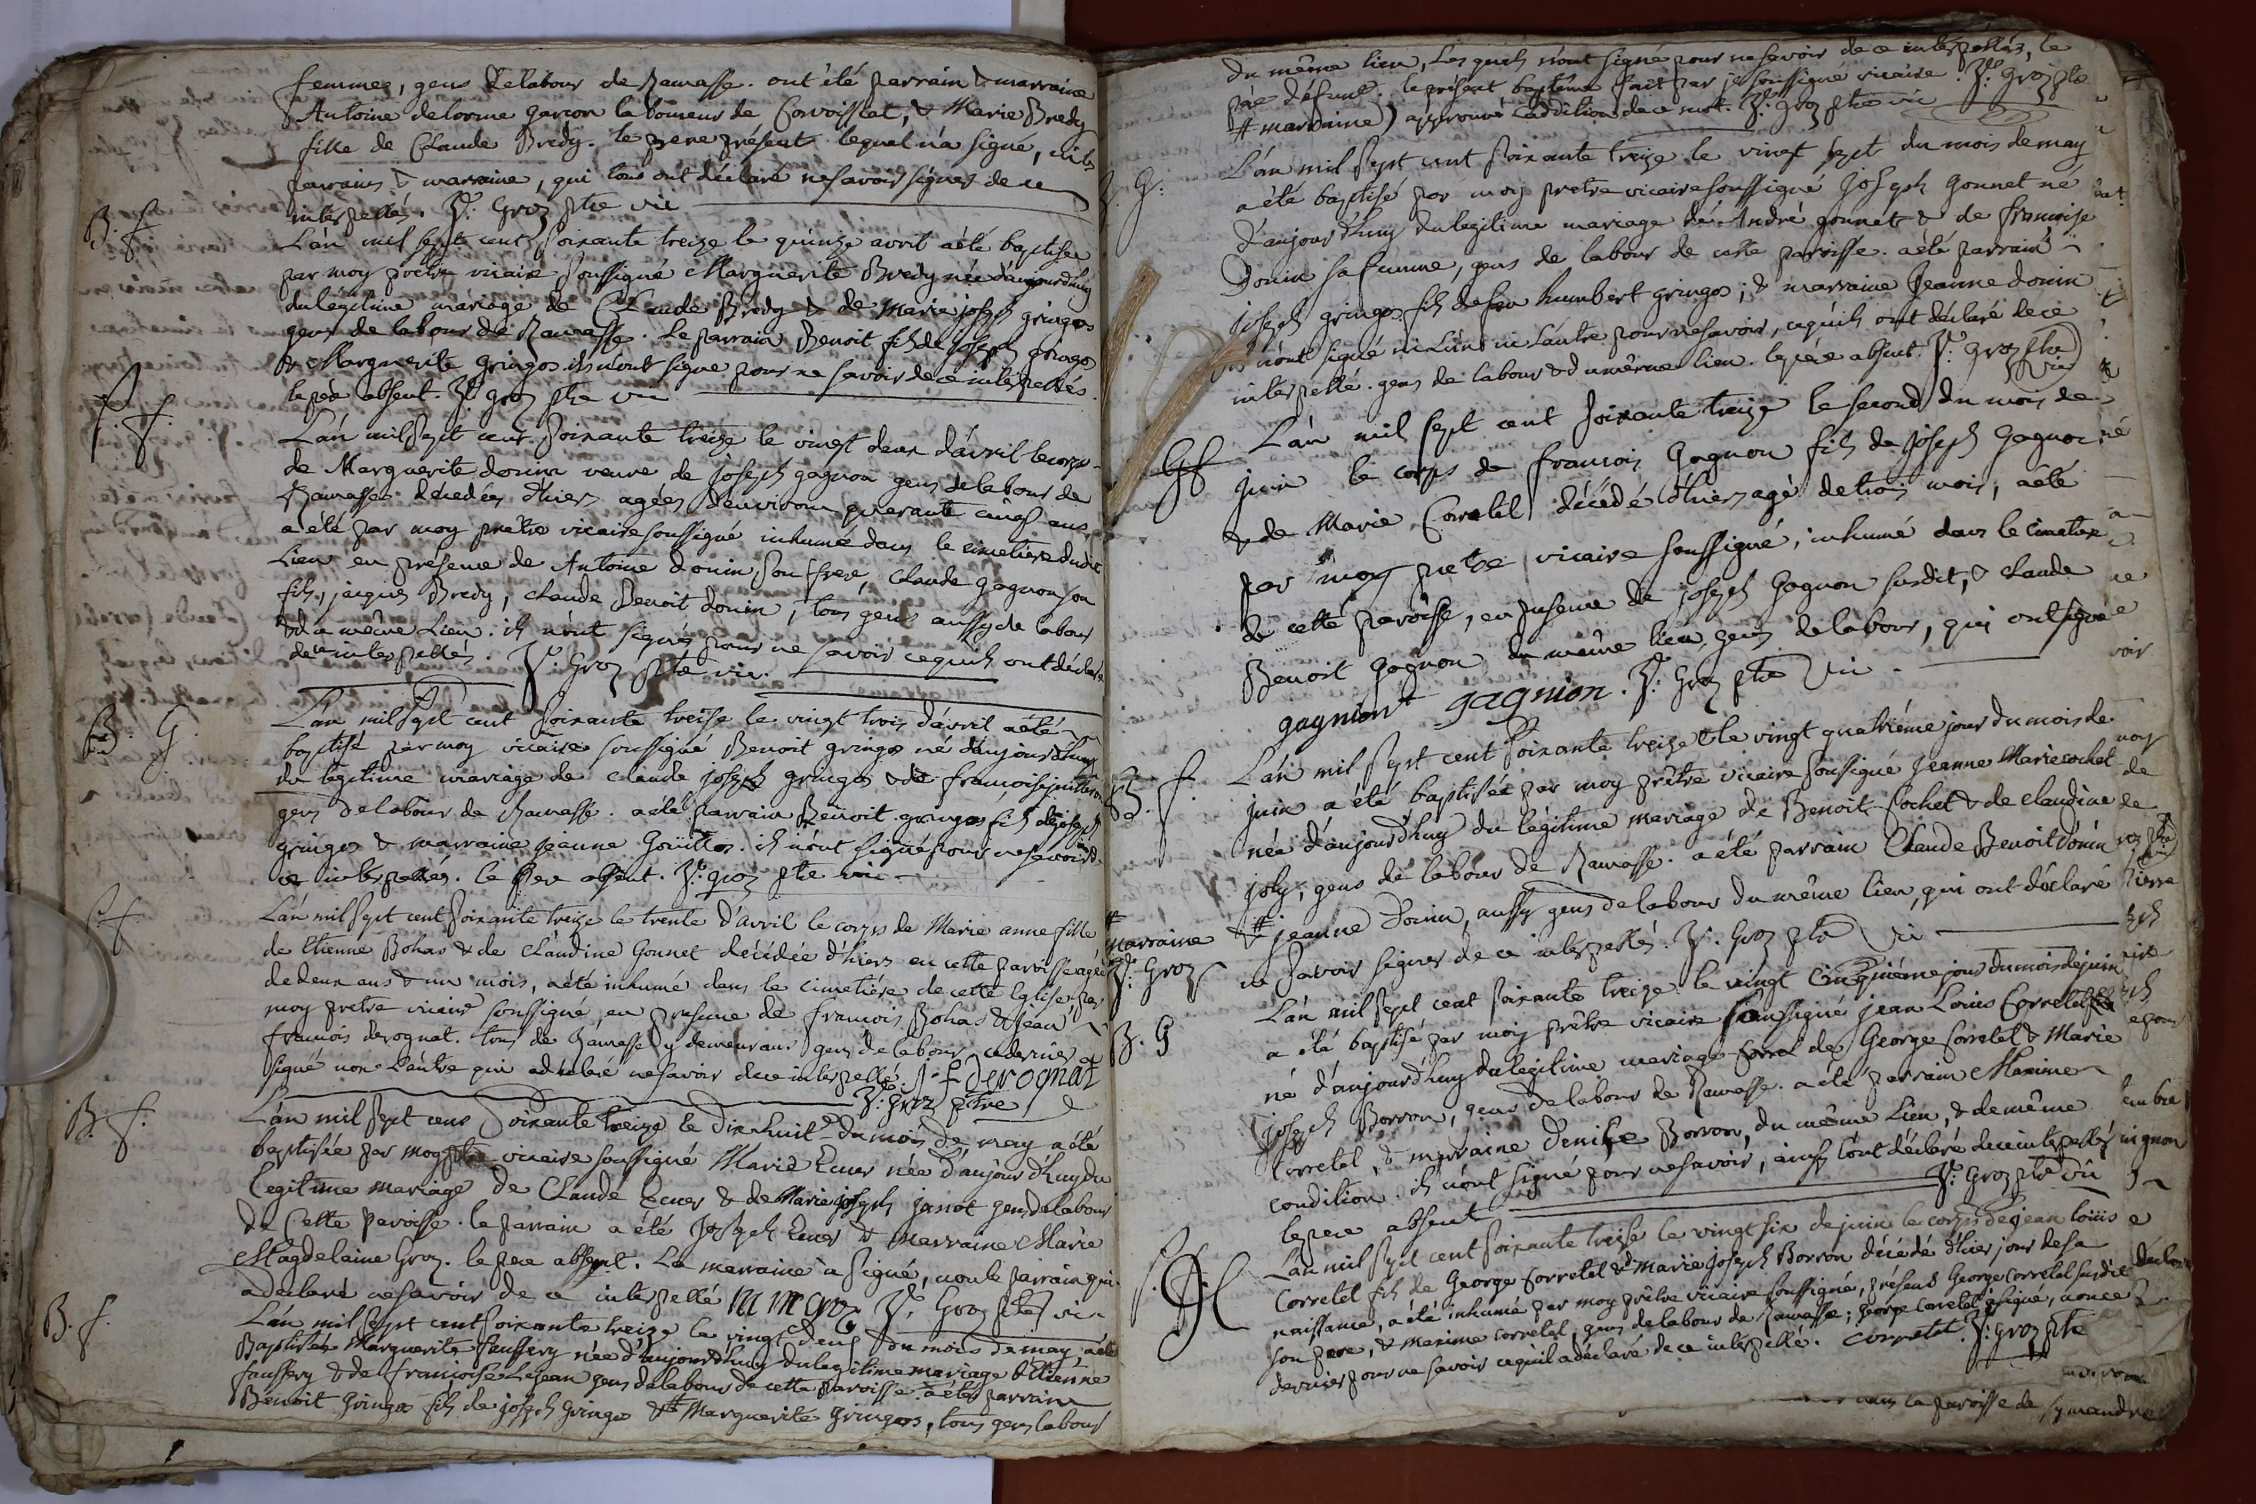 femmee, gens de labour de Ramasse. ont été parrain & marraine
Antoine delorme garçon laboureur de Corvoissiat, & Marie Bredy
fille de Claude Bredy. le pere présent lequel n'a signé, ni les
parrains & marraine, qui tous ont déclaré ne savoir signer de ce
interpellés. Js: Groz ptre vic
B. f.
L'an mil sept cent soixante treize le quinze avril a été baptisée
par moy prêtre vicaire soussigné Marguerite Bredy née d'aujourd'huy
du légitime mariage de Claude Bredy & de Marie joseph gringos
gens de labour de Ramasse. le parrain Benoit fils de Joseph gringos
& Marguerite Gringos. ils n'ont signé pour ne savoir de ce interpellés.
le père absent. Js: groz ptre vic
S. f.
L'an mil sept cent soixante treize le vingt deux d'avril le corps
de Marguerite donin veuve de Joseph gagnon gens de labour de
Ramasse. décédée d'hier agée d'environ quarante cinq ans
a été par moy prêtre vicaire soussigné inhumé dans le cimetière dudit
Lieu en présence de Antoine donin son frere, Claude gagnon son
fils, jacques Bredy, Claude Benoit donin, tous gens aussy de labour
& du même Lieu. ils n'ont signé, pour ne savoir ce qu'ils ont déclaré
de ce interpellés. Js: Groz ptre vic.
B. G.
L'an mil sept cent soixante treise le vingt trois d'avril a été
baptisé par moy vicaire soussigné Benoit gringos né d'aujourd'huy
du légitime mariage de Claude joseph gringos & de francoise
gens de labour de Ramasse. a été parrain Benoit gringos fils de joseph
gringos & marraine jeanne Goüillos. ils n'ont signé pour ne savoir de
ce interpellés. le pere absent. Js: groz ptre vic
S. f.
L'an mil sept cent soixante treize le trente d'avril le corps de Marie anne fille
de Etienne Bohas & de Claudine Gonnet décédée d'hier en cette paroisse agée
de deux ans & un mois, a été inhumé dans le cimetière de cette Eglise par
moy prêtre vicaire soussigné, en présence de francois Bohas & Jean
francois derognat. tous de Ramasse y demeurans gens de labour. ce dernier a
signé non l'autre qui a déclaré ne savoir de ce interpellé. J: f derognat
Js: groz ptre
B. f.
L'an mil sept cens soixante treize le dix huit du mois de may a été
baptisée par moy ptre vicaire soussigné Marie Ecuer née d'aujourd'huy du
legitime mariage de Claude Ecuer & de Marie joseph janot gens de labour
de Cette paroisse. le parrain a été Joseph Ecuer & marraine Marie
Magdelaine Groz. le pere absent. La marraine a signé, non le parrain qui
a déclaré ne savoir de ce interpellé M m Groz Js: Groz ptre vic
B. f.
L'an mil sept cent soixante treize le vingt deux du mois de may a été
Baptisée Marguerite faussery née d'aujourd'huy du legitime mariage d'Etienne
faussery & de francoise Lejean gens de labour de cette paroisse. a été parrain
Benoit Gringos fils de joseph Gringos & Marguerite Gringos, tous gens labour
du même lieu, lesquels n'ont signé pour ne savoir de ce interpellés, le
père défunt. le présent baptême fait par je soussigné vicaire. Js: Groz ptre
# marraine) approuvé l'addition de ce mot. Js: Groz ptre vic
B. G.
L'an mil sept cent soixante treize le vingt sept du mois de may
a été baptisé par moy pretre vicaire soussigné Joseph gonnet né
d'aujourd'huy du legitime mariage de André gonnet & de francoise
Donin sa femme, gens de labour de cette paroisse. a été parrain
joseph gringos fils de feu humbert gringos; & marraine Jeanne donin
ils n'ont signé ni L'un ni L'autre pour ne savoir, ce qu'ils ont déclaré de ce
interpellé. gens de labour & du même lieu. le père absent. Js: Groz ptre
vic
L'an mil sept cent soixante treize le second du mois de
juin le corps de francois Gagnon fils de Joseph Gagnon
& de Marie Corretel décédé d'hier agé de trois mois, a été
par moy prêtre vicaire soussigné, inhumé dans le cimetiere
de cette paroisse, en présence de joseph Gagnon susdit, & Claude
Benoit gagnon du même lieu, gens de labour, qui ont signé
gagniont gagnion. Js: Groz ptre vic
B. f.
L'an mil sept cent soixante treize & le vingt quatrième jour du mois de
juin a été baptisée par moy prêtre vicaire soussigné Jeanne Marie cochet
née d'aujourd'huy du légitime mariage de Benoit Cochet & de Claudine
joly, gens de labour de Ramasse. a été parrain Claude Benoit donin
& # jeanne Donin, aussy gens de labour du même lieu, qui ont déclaré
# marraine
Js: Groz
ne savoir signer de ce interpellés. Js: Groz ptre vic
B. G
L'an mil sept cent soixante treize le vingt cinquième jour du mois de juin
a été baptisé par moy prêtre vicaire soussigné jean Louis Corretel
né d'aujourd'huy du legitime mariage de George Corretel & Marie
joseph Borron, gens de labour de Ramasse. a été parrain Maxime
Corretel, & marraine Denise Borron, du même Lieu, & de même
condition. ils n'ont signé pour ne savoir, ainsy l'ont déclaré de ce interpellés
le pere absent Js: Groz ptre vic
L'an mil sept cent soixante treize le vingt six de juin le corps de jean louis
Corretel fils de George Corretel & Marie joseph Borron décédé d'hier jour de sa
naissance, a été inhumé par moy prêtre vicaire soussigné, présens George Corretel susdit
son pere, & Maxime Corretel, gens de labour de Ramasse; george Corretel a signé, non ce
dernier pour ne savoir ce qu'il a déclaré de ce interpellé. corretel. Js: groz ptre
dans la paroisse de symandre